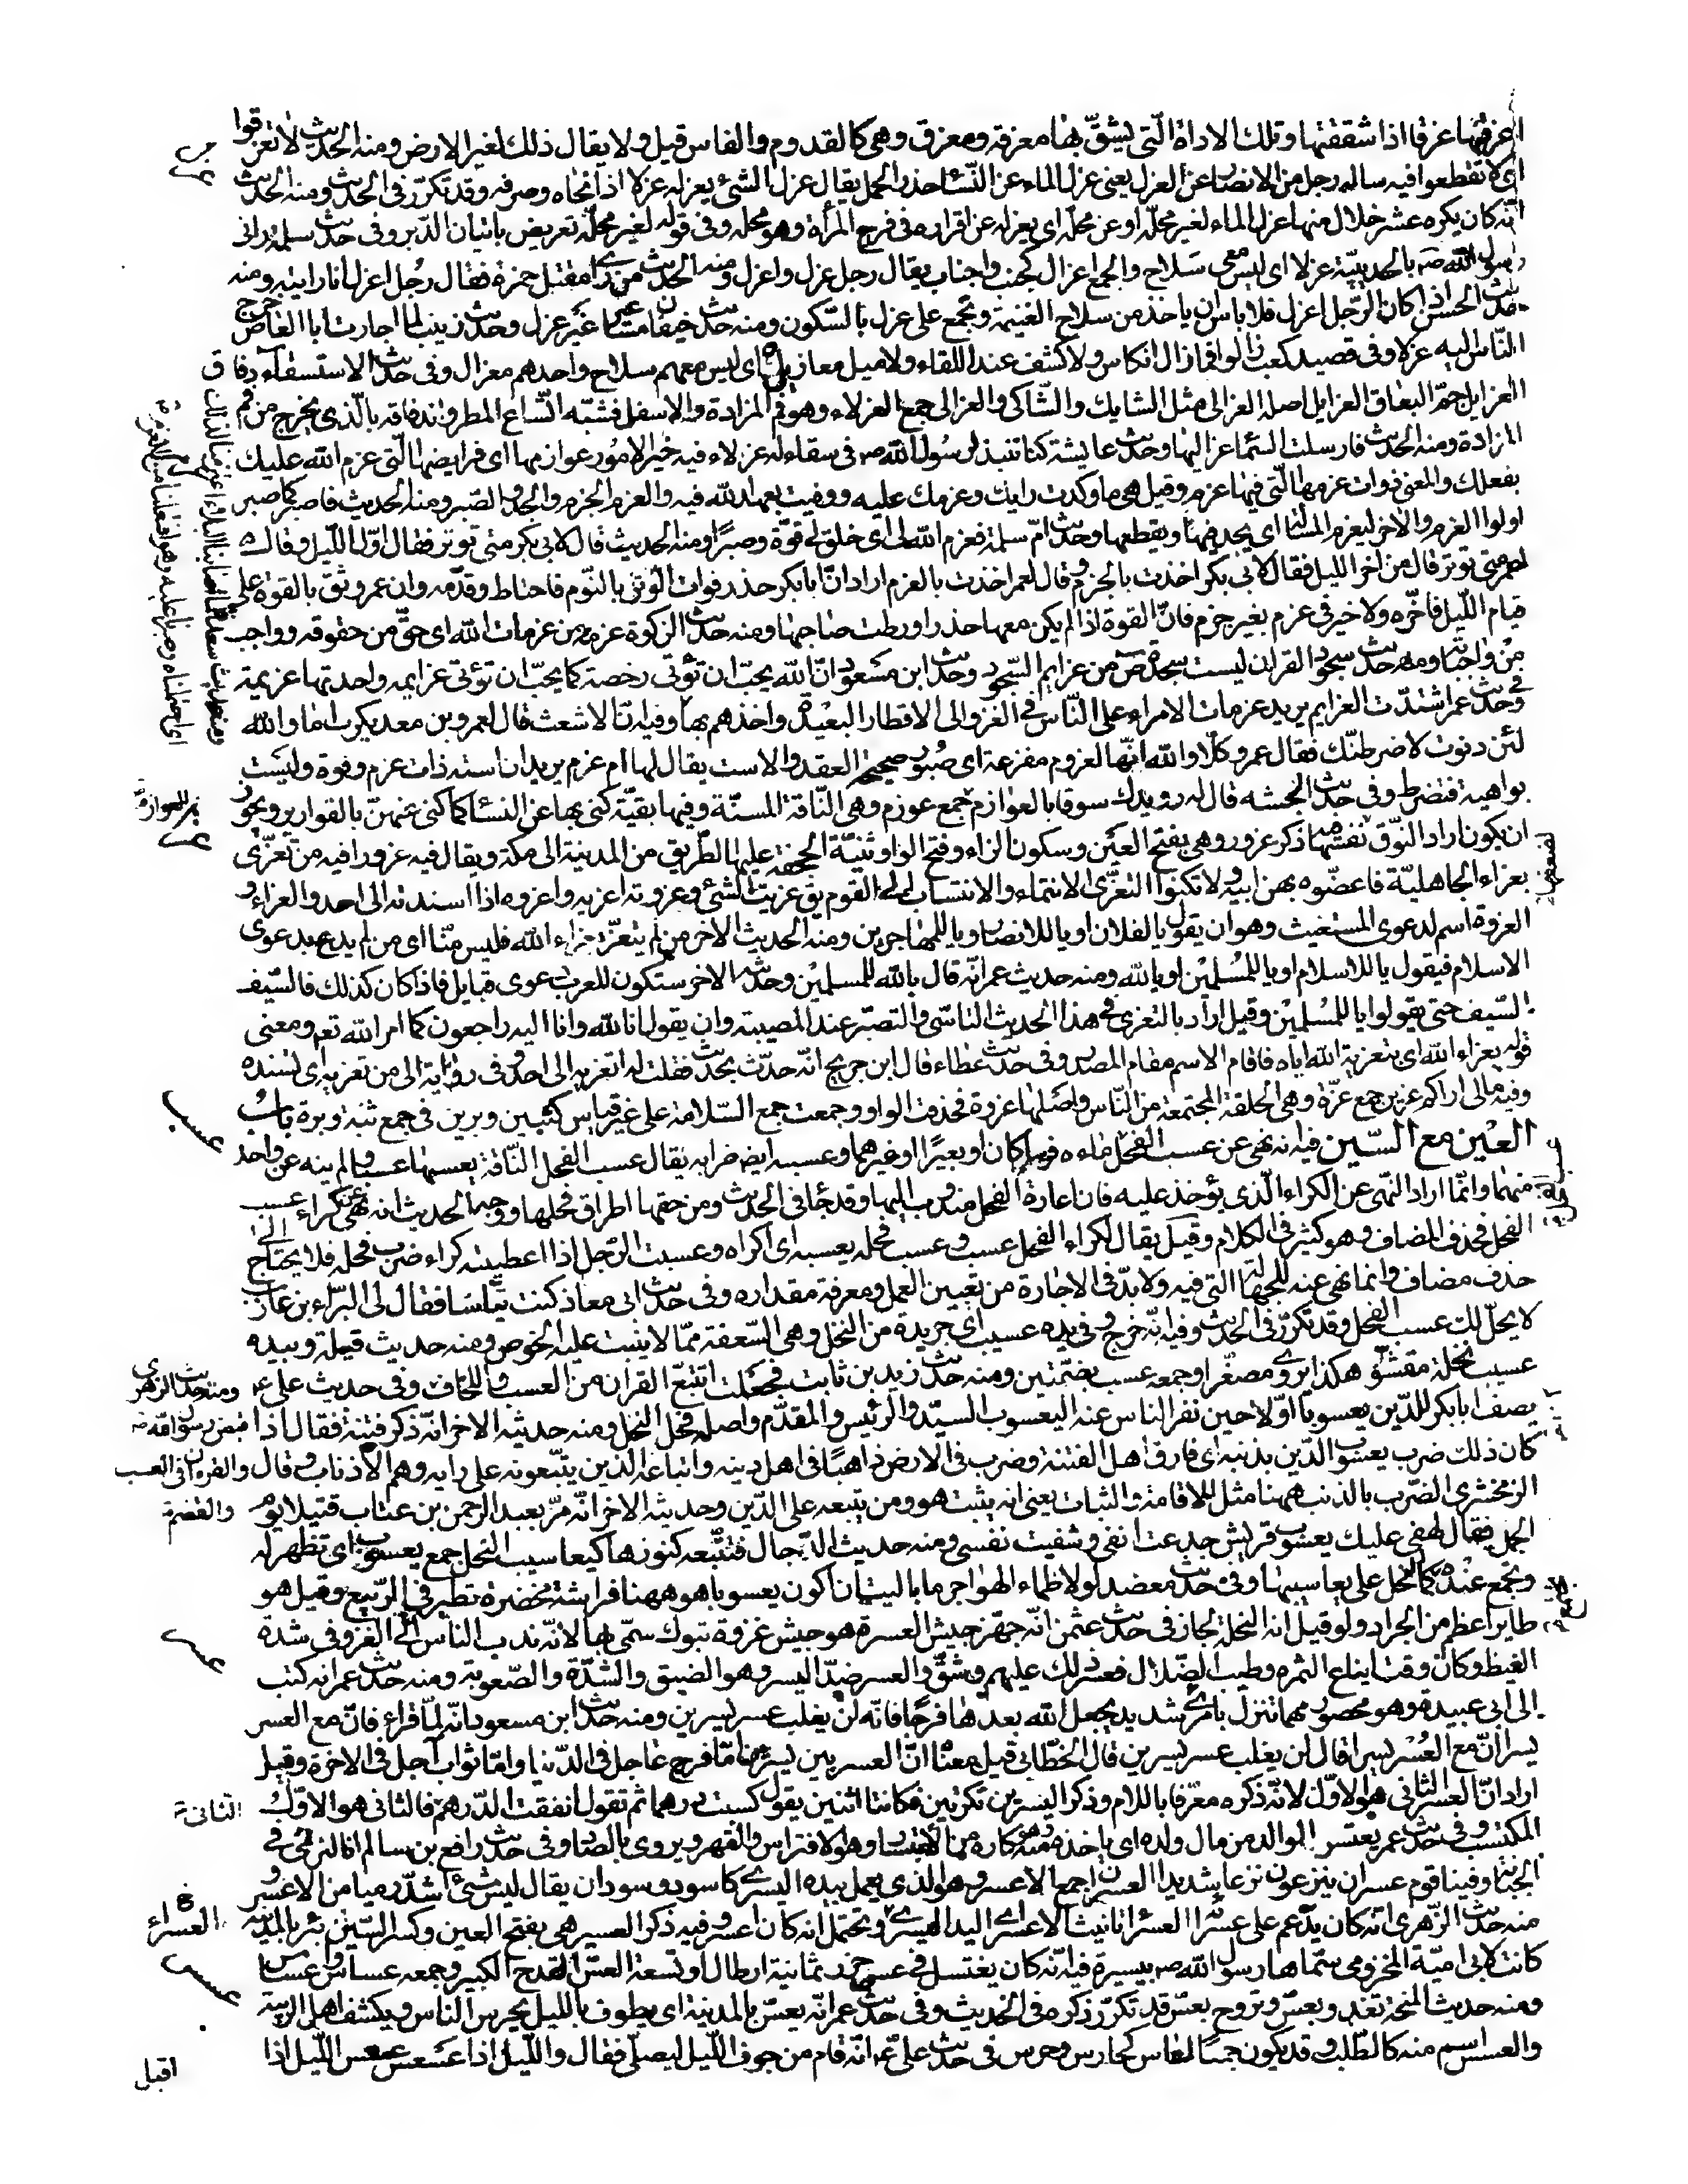 اعزقها عزقا اذا شققتها وتلك الاداة الّتى يشقّ بها معزقة ومعزق وهى كالقدوم والفاس قيل ولا يقال ذلك لغير الارض ومنه الحديث لا تعزقوا
اى لا تقطعوا فيه ساله رجل من الانصار عن العزل يعنى عزل الماء عن النّساء حذر الحمل يقال عزل الشئ يعزله عزلا اذا نحّاه وصرفه وقد تكرّر فى الحديث ومنه الحديث
انّه كان يكره عشر خلال منها عزل الماء لغير محلّه او عن محلّه اى يعزله عن اقراره فى فرج المرأة وهو محله وفى قوله لغير محلّه تعريض باتيان الدّبر وفى حديث سلمة رانى
رسول الله ص بالحديبيّة عزلا اى ليس معى سلاح والجمع اعزال كجنب واجناب يقال رجل عزل واعزل ومنه الحديث من راى مقتل حمزة فقال رجل اعزل انا رايته ومنه
حديث الحسن اذا كان الرّجل اعزل فلا باس ان ياخذ من سلاح الغنيمة ويجمع على عزل بالسّكون ومنه حديث خيفان مساعير غير عزل وحديث زينب لما اجارت ابا العاص خرج
النّاس اليه عزلا وفى قصيد كعب زالوا فما زال انكاس ولا كشف عند اللقاء ولا ميل معازيل اى ليس معهم سلاح واحدهم معزال وفى حديث الاستسقاء دفاق
العزايل جمّ البعاق العزايل اصله العزالى مثل الشايك والشّاكى والعزالى جمع العزلاء وهو فم المزادة والاسفل فشبّه اتّساع المطر واندفاقه بالّذى يخرج من فم
المزادة ومنه الحديث فارسلت السّماء عزاليها وحديث عايشة كنا ننبذ لرسول الله ص فى سقاء له عزلاء فيه خير الامور عوازمها اى فرايضها الّتى عزم الله عليك
بفعلك والمعنى ذوات عزمها الّتى فيها عزم وقيل هى ما وكدت رايك وعزمك عليه ووفيت بعهد الله فيه والعزم الجزم والجد والصّبر ومنه الحديث فاصبر كما صبر
اولوا العزم والاخر ليعزم المسئلة اى يجد فيها ويقطعها وحديث امّ سلمة فعزم الله لى اى خلق لى قوّة وصبرا ومنه الحديث قال لابى بكر متى توتر فقال اوّل اللّيل وقال
لعمر متى توتر قال من اخر الليل فقال لابى بكر اخذت بالحزم وقال لعمر اخذت بالعزم اراد انّ ابا بكر حذر فوات الوتر بالنّوم فاحتاط وقدّمه وان عمر وثق بالقوة على
قيام اللّيل فاخّره ولا خير فى عزم بغير حزم فانّ القوة اذا لم يكن معها حذر اورطت صاحبها ومنه حديث الزكوة عزمة من عزمات الله اى حقّ من حقوقه وواجب
من واجباته ومنه حديث سجود القران ليست سجدة ص من عزايم السّجود وحديث ابن مسعود انّ الله يحبّ ان تؤتى رخصه كما يحبّ ان تؤتى عزايمه واحدتها عزيمة
وفى حديث عمر اشتدّت العزايم يريد عزمات الامراء على النّاس فى الغزو الى الاقطار البعيدة واخذهم بها وفيه انّ الاشعث قال لعمرو بن معديكرب اما والله
لئن دنوت لاضرطنّك فقال عمرو كلّا والله انّها لعزوم مفزعة اى صبور صحيحة العقد والاست يقال لها ام عزم يريد ان استه ذات عزم وقوة وليست
بواهية فتضرط وفى حديث انجشه قال له رويدك سوقا بالعوازم جمع عوزم وهى النّاقة المسنّة وفيها بقيّة كنى بها عن النساء كما كنى عنهنّ بالقوارير ويجوز
ان يكون اراد النّوق نفسها ذكر عزور وهى بفتح العين وسكون الزاء وفتح الواو ثنيّة الجحفة عليها الطّريق من المدينة الى مكة ويقال فيه عزورا فيه من تعزّى
بعزاء الجاهليّة فاعضّوه بهن ابيه ولا تكنوا التعزّى الانتماء والانتساب الى القوم يق عزيت الشئ وعزوته اعزيه واعزوه اذا اسندته الى احد والعزاء و
العزوة اسم لدعوى المستغيث وهو ان يقول يا لفلان او يا للانصار ويا للمهاجرين ومنه الحديث الاخر من لم يتعزّ بعزاء الله فليس منّا اى من لم يدع بدعوى
الاسلام فيقول يا للاسلام او يا للمسلمين او يا لله ومنه حديث عمر انّه قال يا لله للمسلمين وحديثه الاخر ستكون للعرب دعوى قبايل فاذا كان كذلك فالسّيف
السّيف حتى يقولوا يا للمسلمين وقيل اراد بالتعزى فى هذا الحديث التاسّى والتصبّر عند المصيبة وان يقول انا لله وانا اليه راجعون كما امر الله تعه ومعنى
قوله بعزاء الله اى بتعزية الله اياه فاقام الاسم مقام المصدر وفى حديث عطاء قال ابن جريج انّه حدّث بحديث فقلت له اتعزيه الى احد وفى رواية الى من تعزيه اى تسنده
وفيه مالى اراكم عزين جمع عزّة وهى الحلقة المجتمعة من النّاس واصلها عزوة فحذفت الواو وجمعت جمع السّلامة على غير قياس كثبين وبرين فى جمع ثبة وبرة باب
العين مع السّين فيه انه نهى عن عسب الفحل ماءه فرسا كان او بعيرا او غيرهما وعسبه ايضا ضرابه يقال عسب الفحل النّاقة يعسبها عسبا ولم ينه عن واحد
منهما وانّما اراد النّهى عن الكراء الّذى يؤخذ عليه فان اعارة الفحل مندوب اليها وقد جاء فى الحديث ومن حقها اطراق فحلها ووجه الحديث انه نهى عن كراء عسب
الفحل فحذف المضاف وهو كثير فى الكلام وقيل يقال لكراء الفحل عسب وعسب فحله يعسبه اى اكراه وعسبت الرّجل اذا اعطيته كراء ضرب فحله فلا يحتاج الى
حذف مضاف وانما نهى عنه للجهالة التى فيه ولا بدّ فى الاجارة من تعيين العمل ومعرفة مقداره وفى حديث ابى معاذ كنت تيّاسا فقال لى البرّاء بن عازب
لا يحلّ لك عسب الفحل وقد تكرّر فى الحديث وفيه انّه خرج وفى يده عسيب اى جريدة من النخل وهى السّعفة ممّا لا ينبت عليه الخوص ومنه حديث قيلة وبيده
عسيب نخلة مقشوّ هكذا يروى مصغّرا وجمعه عسب بضمّتين ومنه حديث زيد بن ثابت فجعلت اتتبّع القران من العسب واللخاف وفى حديث على ع
يصف ابا بكر للدّين يعسوبا اوّلا حين نفر الناس عنه اليعسوب السيّد والرئيس والمقدّم واصله فحل النحل ومنه حديثه الاخر انّه ذكر فتنة فقال اذا
كان ذلك ضرب يعسوب الدّين بذنبه اى فارق اهل الفتنة وضرب فى الارض ذاهبا فى اهل دينه واتباعه الذين يتّبعونه على رايه وهم الاذناب وقال
الزمخشرى الضّرب بالذنب ههنا مثل للاقامة والثبات يعنى انه يثبت هو ومن يتبعه على الدّين وحديثه الاخر انّه مرّ بعبد الرحمن بن عتاب قتيلا يوم
الجمل فقال لهفى عليك يعسوب قريش جدعت انفى وشفيت نفسى ومنه حديث الدّجال فتتّبعه كنوزها كيعاسيب النحل جمع يعسوب اى تظهر له
وتجمع عنده كما النحل على يعاسيبها وفى حديث معضد لولا ظماء الهواجر ما باليت ان اكون يعسوبا هو ههنا فراشة مخضرة تطير فى الرّبيع وقيل هو
طاير اعظم من الجراد ولو قيل انه النحلة لجاز فى حديث عثمن انّه جهّز جيش العسرة هو جيش غزوة تبوك سمّى بها لانّه ندب الناس الى الغزو فى شدة
القيظ وكان وقت ايناع الثمره وطيب الضّلال فعسر ذلك عليهم وشقّ والعسر ضدّ اليسر وهو الضيق والشدّة والصّعوبة ومنه حديث عمر انه كتب
الى ابى عبيدة وهو محصور مهما تنزل بامرئ شديد يجعل الله بعدها فرجا فانّه لن يغلب عسر يسرين ومنه حديث ابن مسعود انّه لمّا قراء فانّ مع العسر
يسرا انّ مع العسر يسرا قال لن يغلب عسر يسرين قال الخطّابى قيل معناه انّ العسر بين يسرين امّا فرج عاجل فى الدّنيا وامّا ثواب آجل فى الاخرة وقيل
اراد انّ العسر الثانى هو الاوّل لانّه ذكره معرّفا باللام وذكر اليسرين نكرتين فكانتا اثنين يقول كسبت درهما ثم تقول انفقت الدّرهم فالثانى هو الاوّل
المكتسب وفى حديث عمر يعتسر الوالد من مال ولده اى ياخذه منه وهو كاره من الاعتسار وهو الافتراس والقهر ويروى بالصاد وفى حديث رافع بن سالم انا لنرتمى فى
الجبّانة وفينا قوم عسران ينزعون نزعا شديدا العسران جمع الاعسر وهو الّذى يعمل بيده اليسرى كاسود وسودان يقال ليس شئ اشدّ رميا من الاعسر و
منه حديث الزّهرى انّه كان يدّعم على عسرائه العسراء تانيث الاعسر اى اليد العسرى ويحتمل انه كان اعسر وفيه ذكر العسير هى بفتح العين وكسر السّين بئر بالمدينة
كانت لابى اميّة المخزومى سمّاها رسول الله ص بيسيرة فيه انّه كان يغتسل فى عس حزر ثمانية ارطال او تسعة العسّ القدح الكبير وجمعه عساس وعساس
ومنه حديث المنحة تغدو بعسّ وتروح بعسّ قد تكرّر ذكره فى الحديث وفى حديث عمر انّه يعسّ بالمدينة اى يطوف بالليل يحرس الناس ويكشف اهل الريبة
والعسس اسم منه كالطّلب وقد يكون جمعا لعاس كحارس وحرس فى حديث علىّ ع انّه قام من جوف اللّيل ليصلّى فقال واللّيل اذا عسعس عسعس اللّيل اذا
عسب
ومنه حديث الزهرى
قبض رسول الله ص
والقران فى العسب
والقضم
عسر
الثانى
العسراء
عسس
اقبل